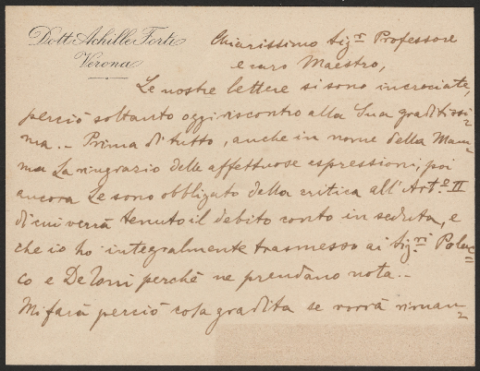 Dott. Achille Forti
Verona
Chiarissimo Sigr Professore
e caro Maestro,
Le nostre lettere si sono incrociate,
perciò soltanto oggi riscontro alla Sua graditissi=
ma. - Prima di tutto, anche in nome della Mam=
ma La ringrazio delle affettuose espressioni; poi
ancora Le sono obbligato della critica all'Arto II
di cui verrà tenuto il debito conto in seduta, e
che io ho integralmente trasmesso ai Sigri Polac=
co e De Toni perchè ne prendano nota. -
Mi farà perciò cosa gradita se vorrà riman=